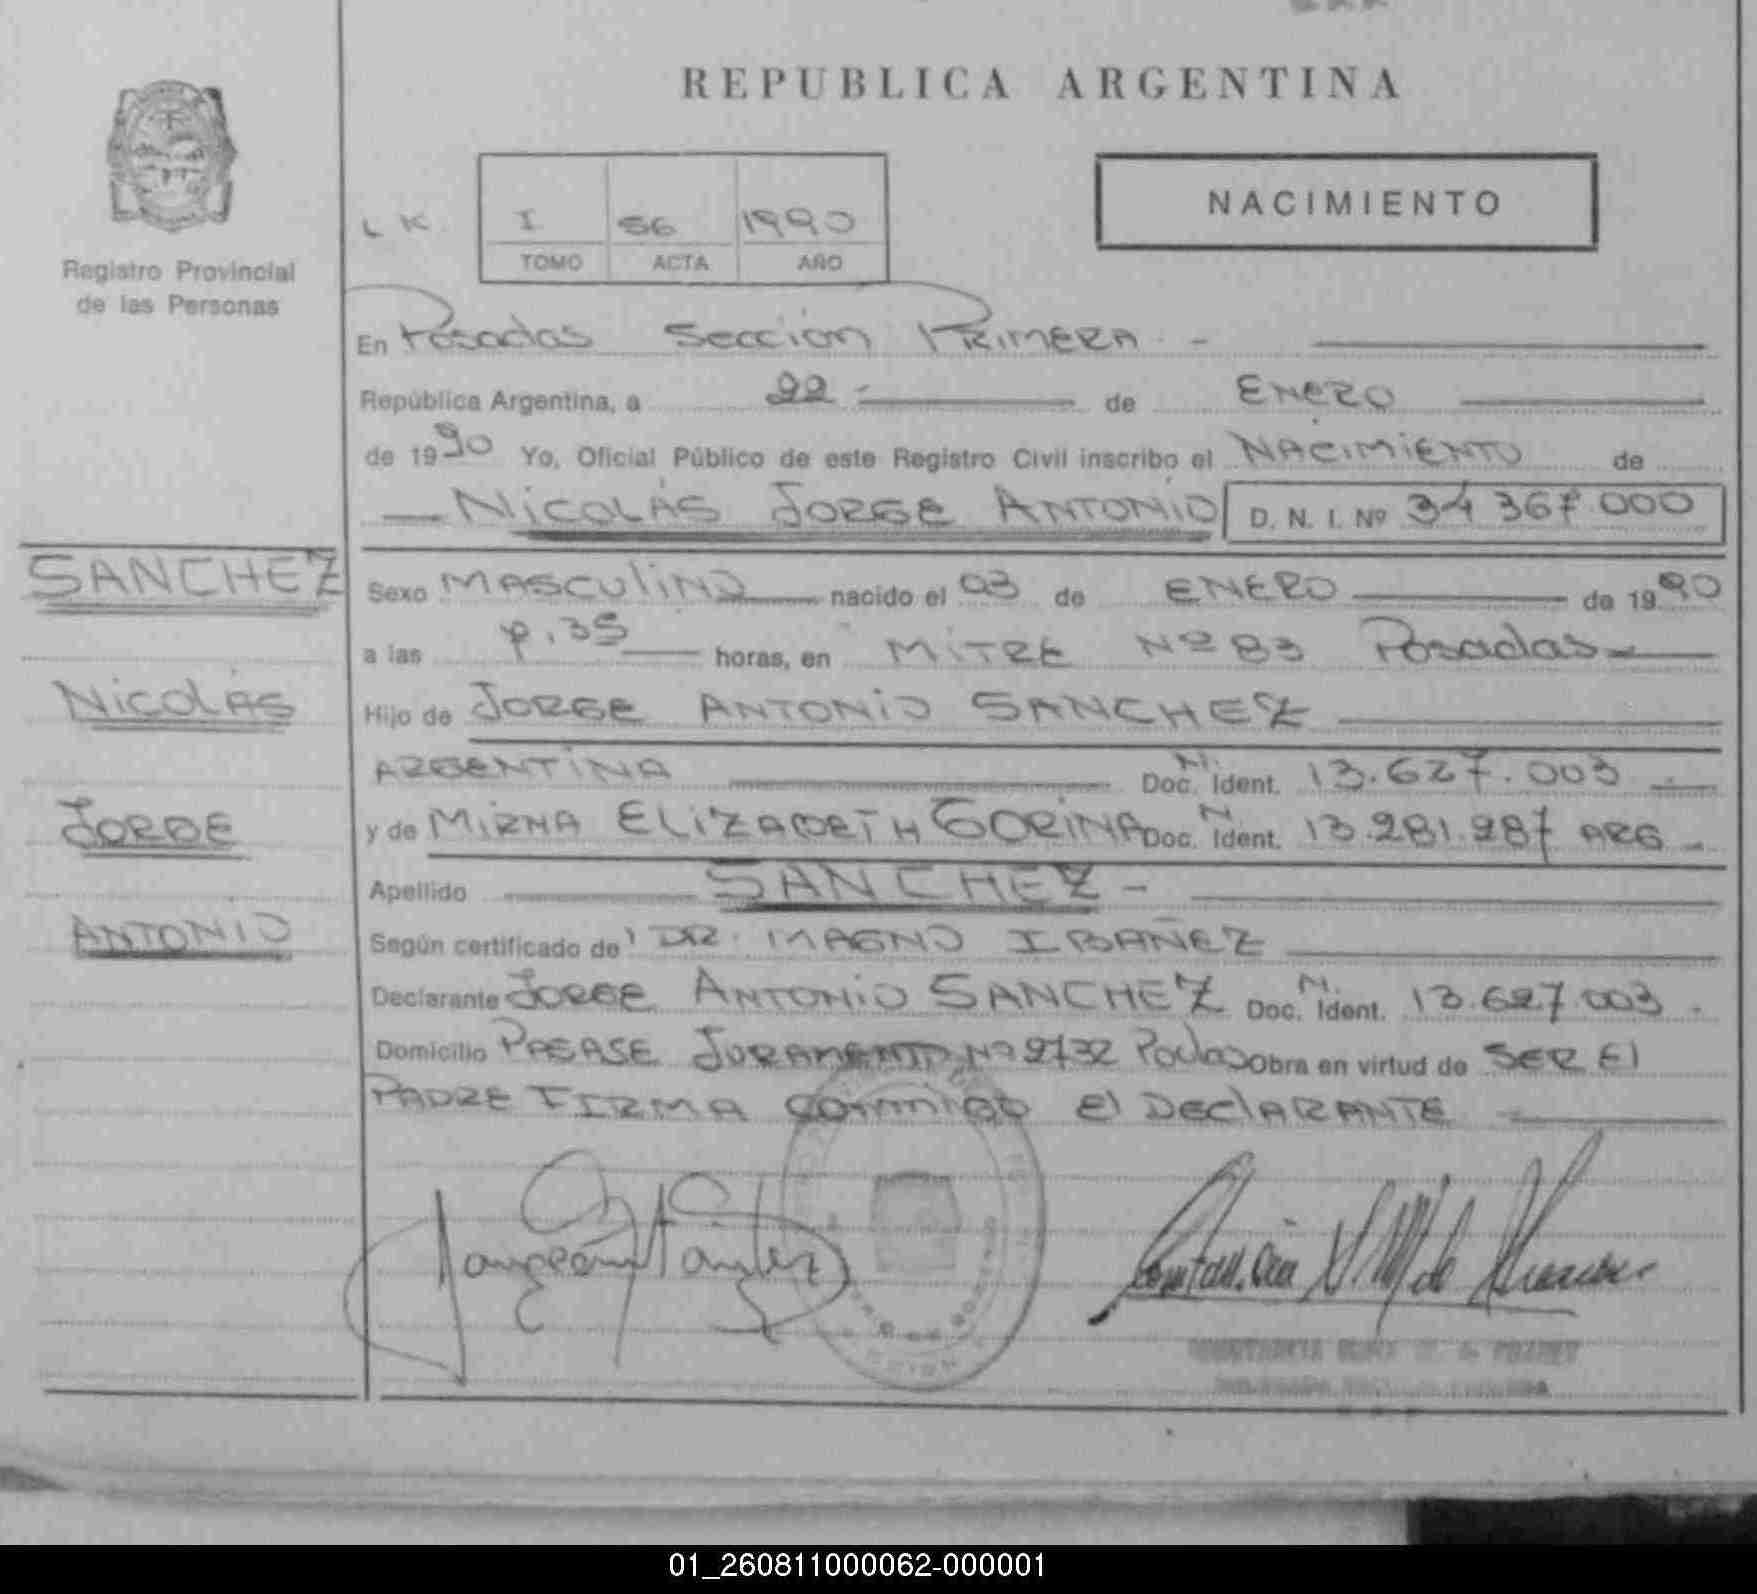 REPUBLICA ARGENTINA
Registro Provincial
de las Personas
NACIMIENTO
L K
I 56 1990
TOMO ACTA AÑO
En Posadas Sección PRIMERA -
República Argentina, a 22 - de ENERO
de 1990 Yo, Oficial Público de este Registro Civil inscribo el NACIMIENTO de
NICOLÁS JORGE ANTONIO D. N. I. Nº 34 367.000
SANCHEZ
NICOLÁS
JORGE
ANTONIO
Sexo MASCULINO nacido el 03 de ENERO de 1990
a las horas, en MITRE Nº 83 Posadas
Hijo de JORGE ANTONIO SANCHEZ
ARGENTINA Doc. N. Ident. 13.627.003
y de MIRNA ELIZABETH GORINA Doc. N Ident. 13.281.287 ARG -
Apellido SANCHEZ -
Según certificado de DR. MAGNO IBAÑEZ
Declarante JORGE ANTONIO SANCHEZ Doc. N. Ident. 13.627.003 .
Domicilio JURAMENTO Nº 2732 Pdas Obra en virtud de SER El
PADRE FIRMA conmigo El DEClARANTE
01_260811000062-000001